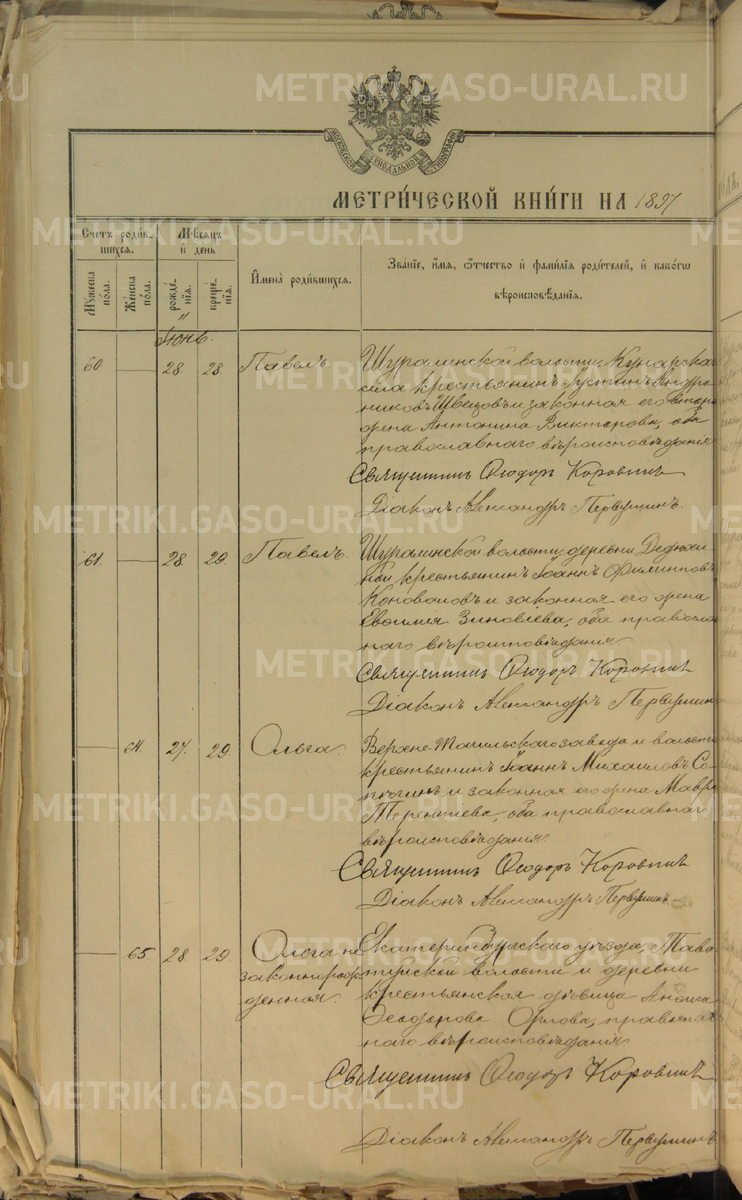 METRIKI.GASO-URAL.RU
МОСКОВСКОЙ СѴНОДАЛЬНОЙ ТИПОГРАФІИ
МЕТРИ́ЧЕСКОЙ КНИ́ГИ НА 1897
Счетъ роди́вшихся.
Мѣсяцъ и҆ де́нь
И҆мена̀ роди́вшихся.
Зва́нїе, и҆́мя, ѻ҆́тчество и҆ фами́лїѧ роди́телей, и҆ како́гѡ
вѣроисповѣ́данїѧ.
Мꙋ́жеска по́ла.
Же́нска по́ла.
рожде́нїѧ.
креще́нїѧ.
Іюнь.
60 — 28 28 Павелъ
Шуралинской волости Кунарска
села крестьянинъ Іустинъ Андро
никовъ Швецовъ и законная его
жена Антонина Викторова, оба
православнаго вѣроисповѣданія
Священникъ Ѳеодоръ Коровинъ
Діаконъ Александръ Первушинъ.
61. — 28 29. Павелъ.
Шуралинской волости деревни
ной крестьянинъ Іоаннъ Филипповъ
Коноваловъ и законная его жена
Евѳимія Зиновіева, оба правосла
наго вѣроисповѣданія
Священникъ Ѳеодоръ Коровинъ
Діаконъ Александръ Первушинъ
— 64. 27. 29. Ольга
Верхне-Тагильскаго завода и волости
крестьянинъ Іоаннъ Михаиловъ Со
пыгинъ и законная его жена Мавра
Терентіева, оба православнаго
вѣроисповѣданія
Священникъ Ѳеодоръ Коровинъ
Діаконъ Александръ Первушинъ
— 65 28 29 Ольга не
законнорож
денная.
Екатеринбургскаго уѣзда, Тава
туйской волости и деревни
крестьянская дѣвица Анна
Ѳеодорова Орлова, православ
наго вѣроисповѣданія
Священникъ Ѳеодоръ Коровинъ
Діаконъ Александръ Первушинъ